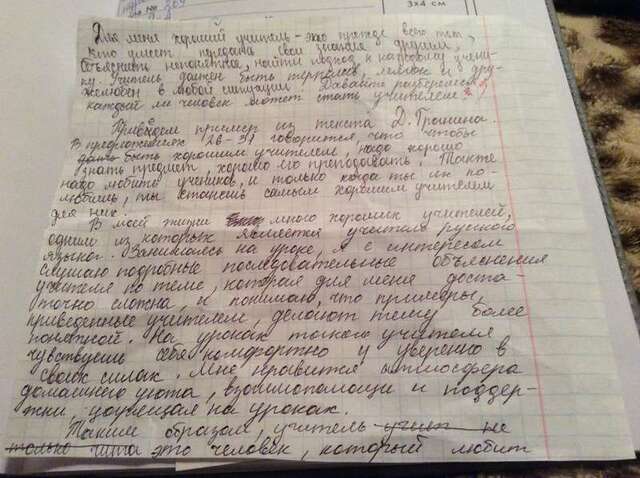 № 309
3х4 см
Для меня хороший учитель - это прежде всего тот,
кто умеет передать свои знания другим,
объяснить непонятное, найти подход к каждому учени-
ку. Учитель должен быть терпелив, и дру-
желюбен в любой ситуации. Давайте разберемся
каждый ли человек может стать учителем?
Приведем пример из текста Д. Гранина.
В предложениях (26-31) говорится, что чтобы
дать быть хорошим учителем, надо хорошо
знать предмет, хорошо его преподовать. Также
надо любить учеников, и только когда ты их по-
любишь, ты станешь самым хорошим учителем
для них.
В моей жизни много хороших учителей,
одним из которых является учитель русского
языка. Занимаясь на уроке, я с интересом
слушаю подробные последовательные объяснения
учителя по теме, которая для меня доста-
точно сложна, и понимаю, что примеры,
приведенные учителем, делают тему более
понятной. На уроках такого учителя
чувствуешь себя комфортно и уверенно в
своих силах. Мне нравится атмосфера
домашнего уюта, взаимопомощи и поддер-
жки, царящая на уроках.
Таким образом, учитель не
только это человек, который любит